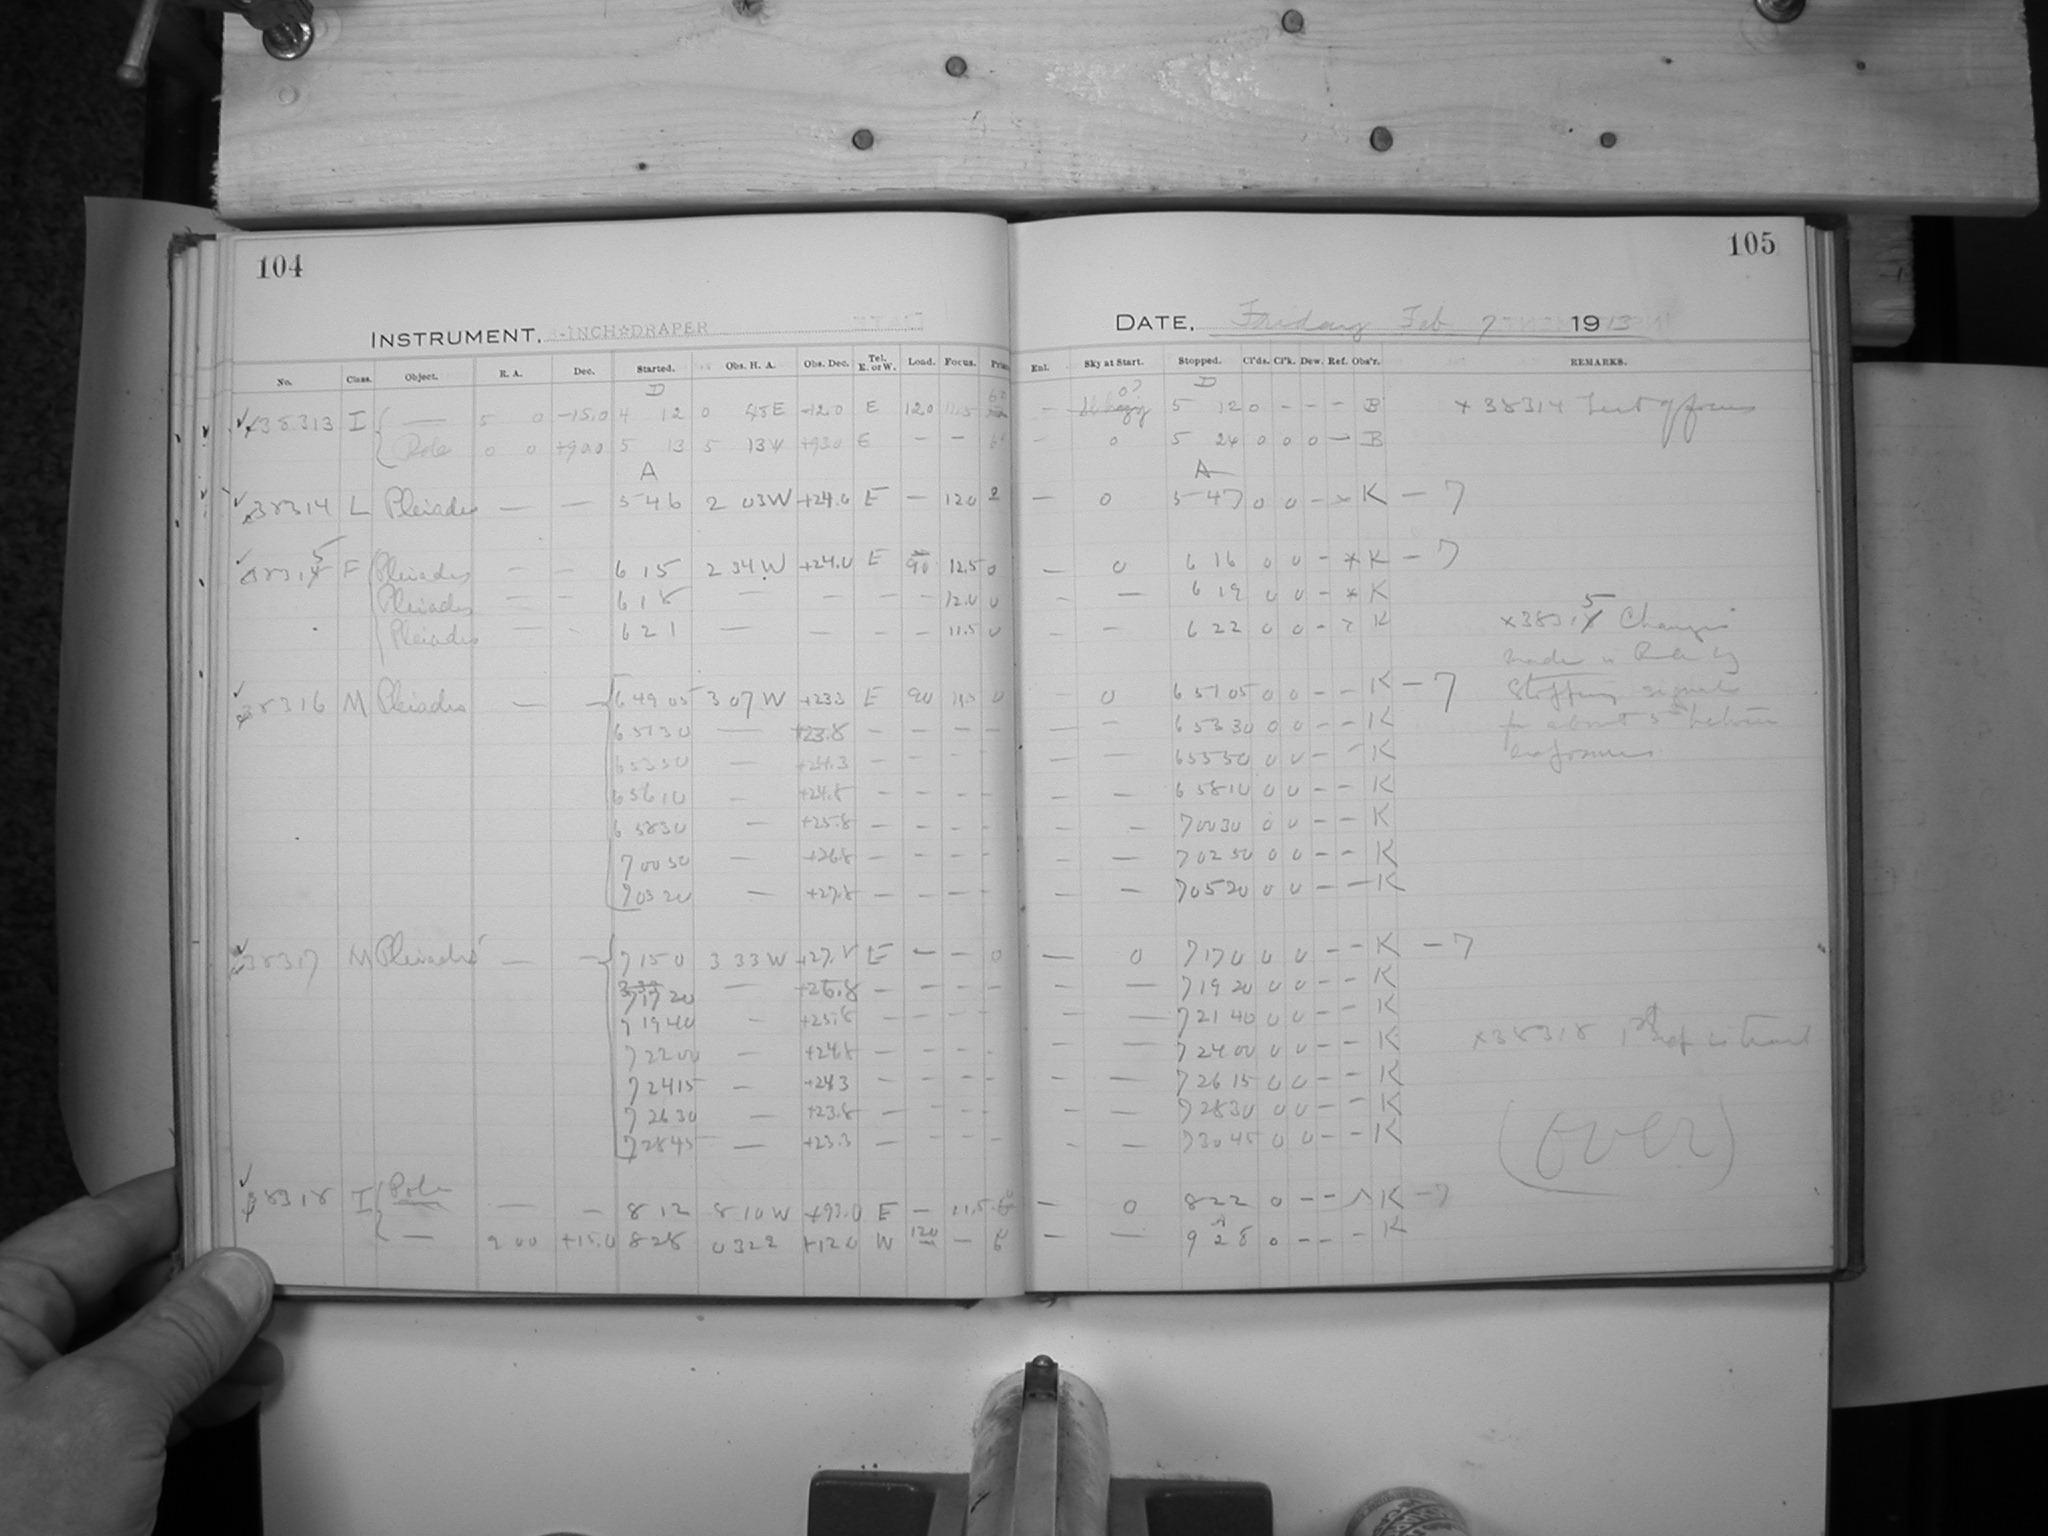 104
INSTRUMENT, 8-INCH☆DRAPER
No. Class. Object. R. A. Dec. Started. Obs. H. A. Obs. Dec. Tel. E. or W. Load. Focus.
D
38313 I — 5 0 -15.0 4 12 0 48E -12.0 E 120 11.5
Pole 0 0 +90.0 5 13 5 13W +93.0 E — —
A
38314 L Pleiades — — 5 46 2 03W +24.0 E — 12.0 2
38315 F Pleiades — — 6 15 2 34W +24.0 E 90 12.5 0
Pleiades — — 6 18 — — — — 12.0 0
Pleiades — — 6 21 — — — — 11.5 0
38316 M Pleiades — — 6 49 05 3 07 W +23.3 E 90 11.5 0
6 51 30 — +23.8 — — — —
6 53 50 — +24.3 — — — —
6 56 10 — +24.8 — — — —
6 58 30 — +25.8 — — — —
7 00 50 — +26.8 — — — —
7 03 20 — +27.8 — — — —
38317 M Pleiades — — 7 15 0 3 33 W +27.8 E — — 0
7 17 20 — +26.8 — — — —
7 19 40 — +25.8 — — — —
7 22 00 — +24.8 — — — —
7 24 15 — +24.3 — — — —
7 26 30 — +23.8 — — — —
7 28 45 — +23.3 — — — —
38318 I Pole — — 8 12 8 10 W +93.0 E — 11.5
— 9 00 +15.0 8 28 0 32 2 +12.0 W 120 —
105
DATE, Friday Feb 7 1913
Enl. Sky at Start. Stopped. Cl'ds. Cl'k. Dew. Ref. Obs'r. REMARKS.
D
— 5 12 0 - - - B x 38314 Test of focus
— 0 5 24 0 0 0 — B
A
— 0 5 47 0 0 - x K — 7
— 0 6 16 0 0 - x K — 7
— — 6 19 0 0 - x K
— — 6 22 0 0 - K
x38315 Changes
made in R.A. by
— 0 6 51 05 0 0 - - K — 7
stopping signals
— — 6 53 30 0 0 - - K
for about 5 between
— — 6 55 50 0 0 - - K
exposures
— — 6 58 10 0 0 - - K
— — 7 00 30 0 0 - - K
— — 7 02 50 0 0 - - K
— — 7 05 20 0 0 - - K
— 0 7 17 0 0 0 - - K — 7
— — 7 19 20 0 0 - - K
— — 7 21 40 0 0 - - K
x38318 1st
— — 7 24 00 0 0 - - K
— — 7 26 15 0 0 - - K
— — 7 28 30 0 0 - - K
— — 7 30 45 0 0 - - K
(over)
— 0 8 22 0 - - K — 7
— — 9 28 0 - - - K